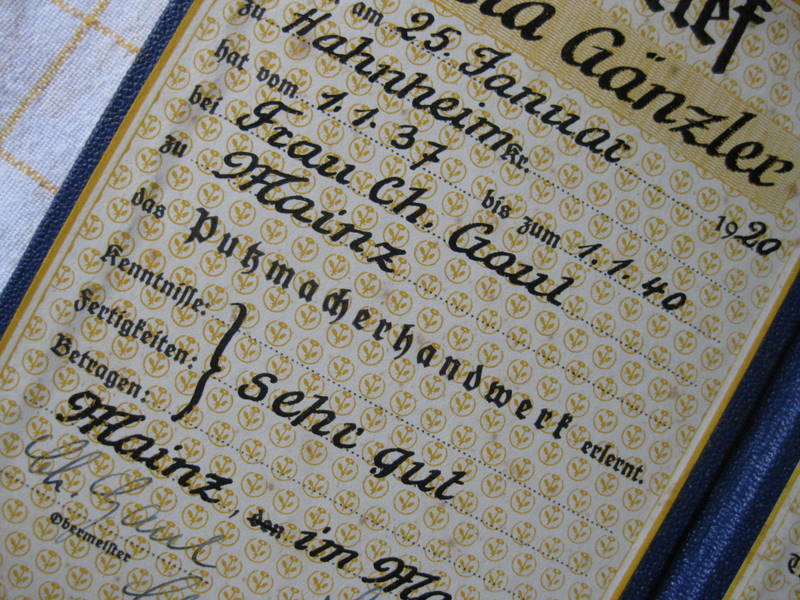 Gänzler
am 25. Januar 1920
zu Hahnheim Kr.
hat vom 1.1.37 bis zum 1.1.40
bei Frau Ch. Gaul
zu Mainz
das Putzmacherhandwerk erlernt.
Kenntnisse:
Fertigkeiten: } sehr gut
Betragen:
Mainz, den im
Ch. Gaul
Obermeister